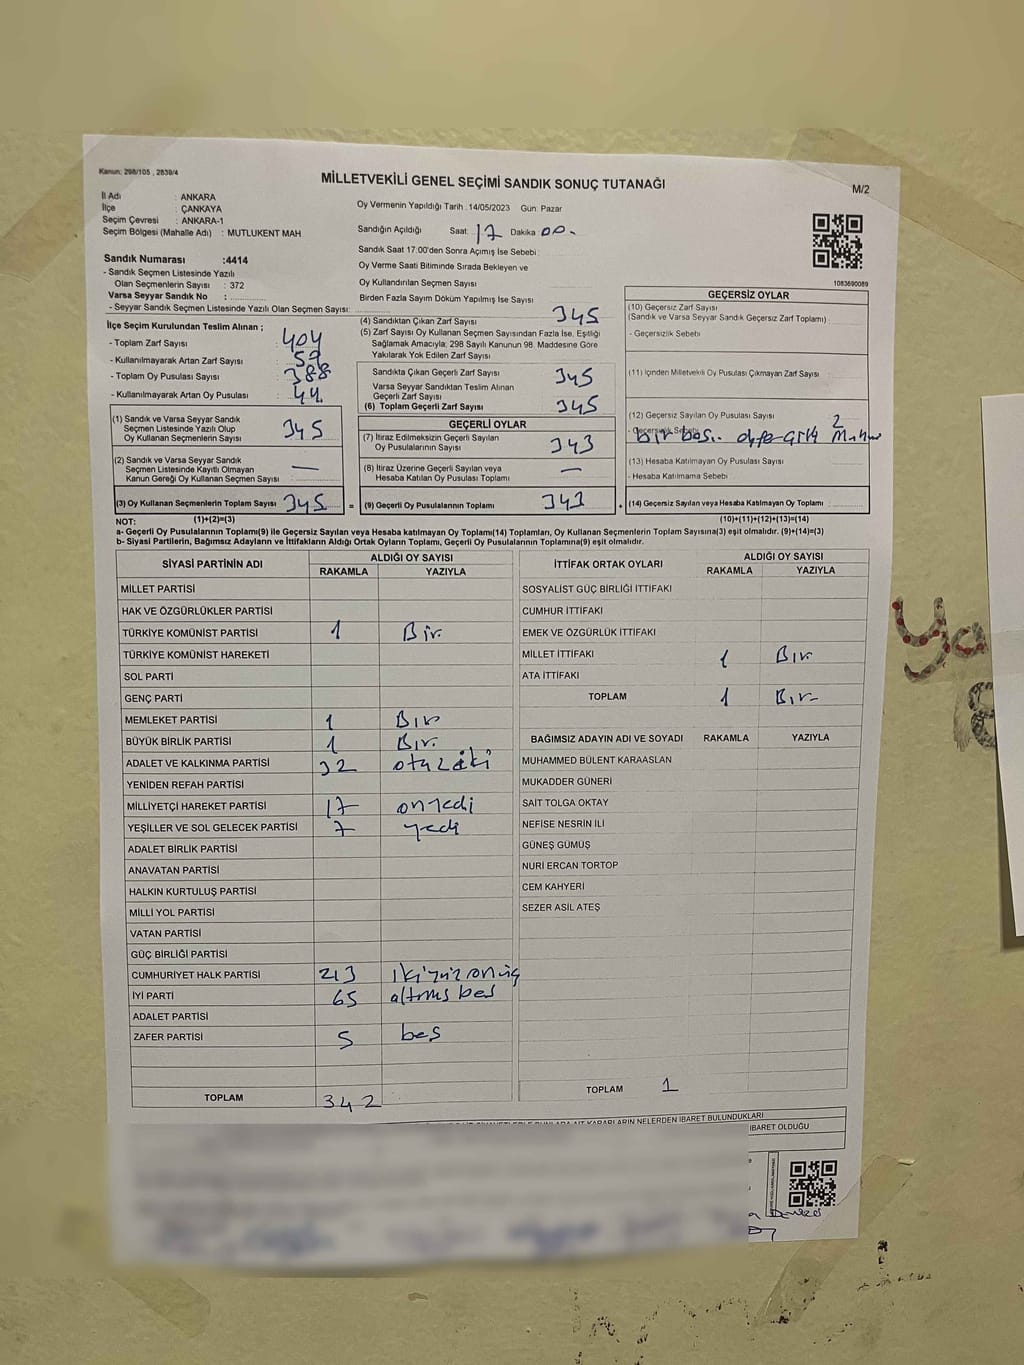 Kanun: 298/105 , 2839/4
MİLLETVEKİLİ GENEL SEÇİMİ SANDIK SONUÇ TUTANAĞI
M/2
İl Adı : ANKARA
İlçe : ÇANKAYA
Seçim Çevresi : ANKARA-1
Seçim Bölgesi (Mahalle Adı) : MUTLUKENT MAH.
Oy Vermenin Yapıldığı Tarih : 14/05/2023 Gün: Pazar
Sandığın Açıldığı Saat: 17 Dakika 00.
Sandık Saat 17:00'den Sonra Açımış İse Sebebi :
Oy Verme Saati Bitiminde Sırada Bekleyen ve
Oy Kullandırılan Seçmen Sayısı
Birden Fazla Sayım Döküm Yapılmış İse Sayısı
1083690089
Sandık Numarası :4414
- Sandık Seçmen Listesinde Yazılı
Olan Seçmenlerin Sayısı : 372
Varsa Seyyar Sandık No :
- Seyyar Sandık Seçmen Listesinde Yazılı Olan Seçmen Sayısı:
İlçe Seçim Kurulundan Teslim Alınan ;
- Toplam Zarf Sayısı : 404
- Kullanılmayarak Artan Zarf Sayısı : 59
- Toplam Oy Pusulası Sayısı : 388
- Kullanılmayarak Artan Oy Pusulası : 44
(1) Sandık ve Varsa Seyyar Sandık
Seçmen Listesinde Yazılı Olup
Oy Kullanan Seçmenlerin Sayısı 345
(2) Sandık ve Varsa Seyyar Sandık
Seçmen Listesinde Kayıtlı Olmayan
Kanun Gereği Oy Kullanan Seçmen Sayısı —
(3) Oy Kullanan Seçmenlerin Toplam Sayısı 345 =
(1)+(2)=(3)
(4) Sandıktan Çıkan Zarf Sayısı 345
(5) Zarf Sayısı Oy Kullanan Seçmen Sayısından Fazla İse, Eşitliği
Sağlamak Amacıyla; 298 Sayılı Kanunun 98. Maddesine Göre
Yakılarak Yok Edilen Zarf Sayısı
Sandıkta Çıkan Geçerli Zarf Sayısı 345
Varsa Seyyar Sandıktan Teslim Alınan
Geçerli Zarf Sayısı
(6) Toplam Geçerli Zarf Sayısı 345
GEÇERLİ OYLAR
(7) İtiraz Edilmeksizin Geçerli Sayılan
Oy Pusulalarının Sayısı 343
(8) İtiraz Üzerine Geçerli Sayılan veya
Hesaba Katılan Oy Pusulası Toplamı —
(9) Geçerli Oy Pusulalarının Toplamı 343 +
GEÇERSİZ OYLAR
(10) Geçersiz Zarf Sayısı
(Sandık ve Varsa Seyyar Sandık Geçersiz Zarf Toplamı)
- Geçersizlik Sebebi
(11) İçinden Milletvekili Oy Pusulası Çıkmayan Zarf Sayısı
(12) Geçersiz Sayılan Oy Pusulası Sayısı 2
- Geçersizlik Sebebi
(13) Hesaba Katılmayan Oy Pusulası Sayısı
- Hesaba Katılmama Sebebi
(14) Geçersiz Sayılan veya Hesaba Katılmayan Oy Toplamı
(10)+(11)+(12)+(13)=(14)
NOT:
a- Geçerli Oy Pusulalarının Toplamı(9) ile Geçersiz Sayılan veya Hesaba katılmayan Oy Toplamı(14) Toplamları, Oy Kullanan Seçmenlerin Toplam Sayısına(3) eşit olmalıdır. (9)+(14)=(3)
b- Siyasi Partilerin, Bağımsız Adayların ve İttifakların Aldığı Ortak Oyların Toplamı, Geçerli Oy Pusulalarının Toplamına(9) eşit olmalıdır.
SİYASİ PARTİNİN ADI
ALDIĞI OY SAYISI
RAKAMLA YAZIYLA
MİLLET PARTİSİ
HAK VE ÖZGÜRLÜKLER PARTİSİ
TÜRKİYE KOMÜNİST PARTİSİ 1 Bir
TÜRKİYE KOMÜNİST HAREKETİ
SOL PARTİ
GENÇ PARTİ
MEMLEKET PARTİSİ 1 Bir
BÜYÜK BİRLİK PARTİSİ 1 Bir
ADALET VE KALKINMA PARTİSİ 32 otuziki
YENİDEN REFAH PARTİSİ
MİLLİYETÇİ HAREKET PARTİSİ 17 onyedi
YEŞİLLER VE SOL GELECEK PARTİSİ 7 yedi
ADALET BİRLİK PARTİSİ
ANAVATAN PARTİSİ
HALKIN KURTULUŞ PARTİSİ
MİLLİ YOL PARTİSİ
VATAN PARTİSİ
GÜÇ BİRLİĞİ PARTİSİ
CUMHURİYET HALK PARTİSİ 213 ikiyüzonüç
İYİ PARTİ 65 altmış beş
ADALET PARTİSİ
ZAFER PARTİSİ 5 beş
TOPLAM 342
İTTİFAK ORTAK OYLARI
ALDIĞI OY SAYISI
RAKAMLA YAZIYLA
SOSYALİST GÜÇ BİRLİĞİ İTTİFAKI
CUMHUR İTTİFAKI
EMEK VE ÖZGÜRLÜK İTTİFAKI
MİLLET İTTİFAKI 1 Bir
ATA İTTİFAKI
TOPLAM 1 Bir
BAĞIMSIZ ADAYIN ADI VE SOYADI RAKAMLA YAZIYLA
MUHAMMED BÜLENT KARAASLAN
MUKADDER GÜNERİ
SAİT TOLGA OKTAY
NEFİSE NESRİN İLİ
GÜNEŞ GÜMÜŞ
NURİ ERCAN TORTOP
CEM KAHYERİ
SEZER ASİL ATEŞ
TOPLAM 1
KARARLARIN NELERDEN İBARET BULUNDUKLARI
İBARET OLDUĞU
ya